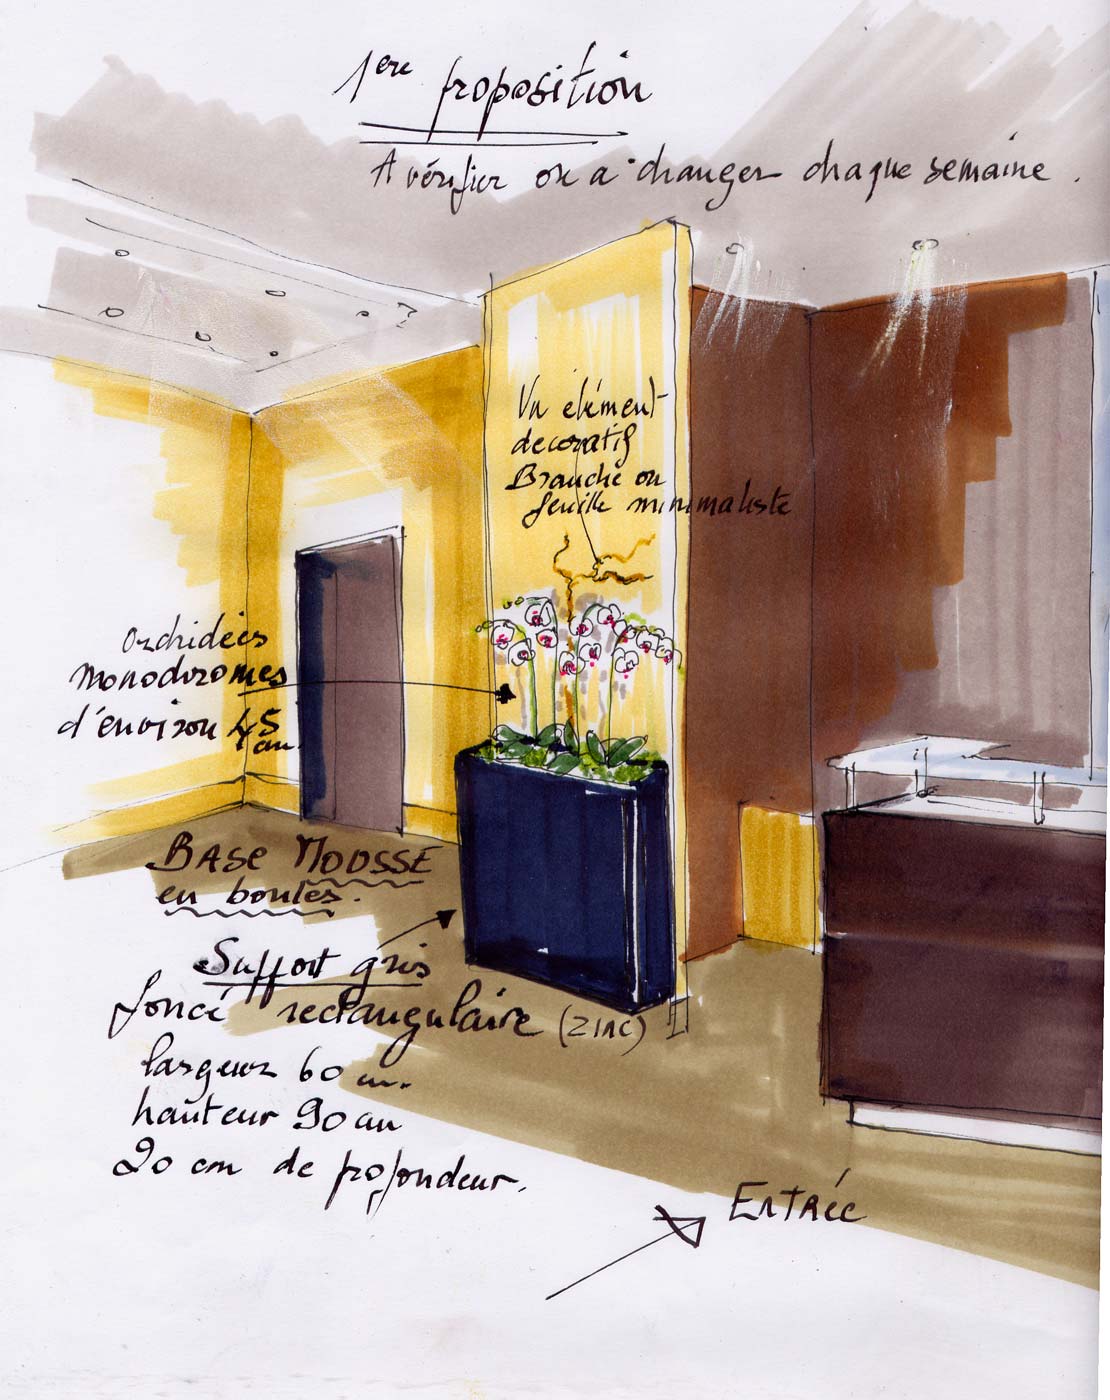 1ere proposition
A vérifier ou a changer chaque semaine.
Un élément
decoratif
Branche ou
feuille minimaliste
Orchidées
Monochromes
d'environ 45
cm.
BASE MOUSSE
en boules.
Support gris
foncé rectangulaire (ZINC)
largeur 60 cm.
hauteur 90 cm
20 cm de profondeur.
ENTRÉE